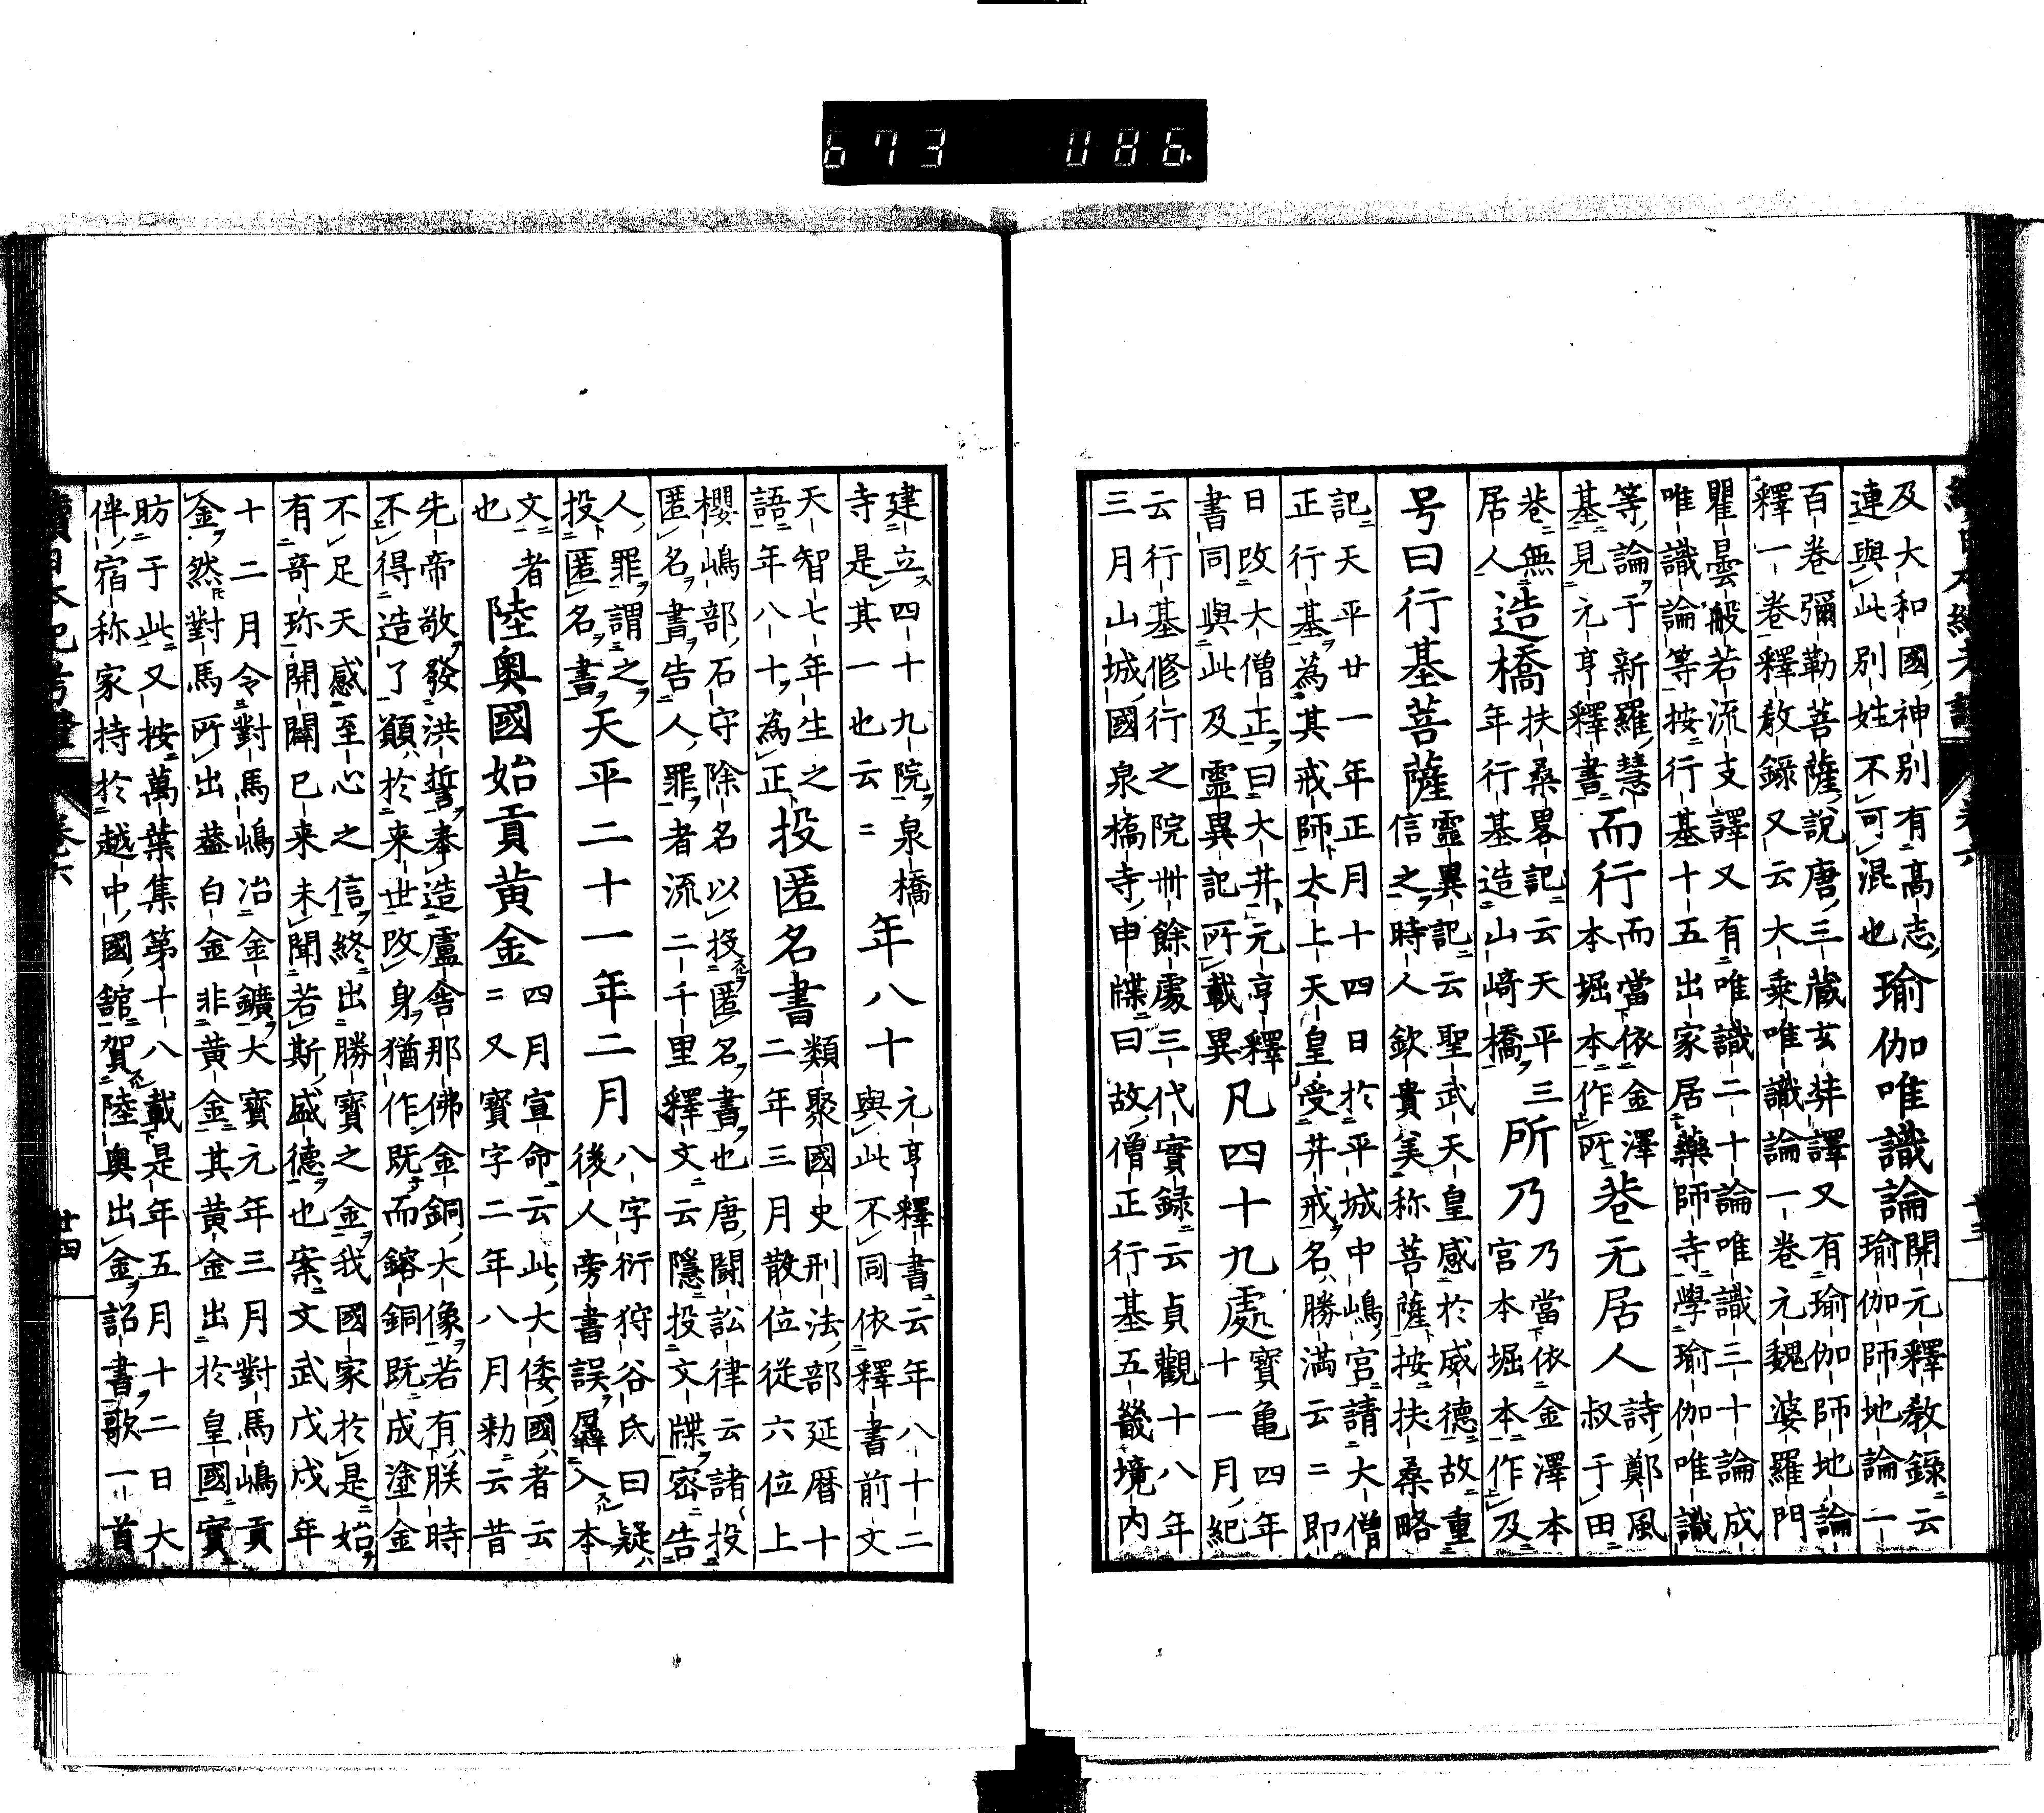 續日本紀考證 卷六
及大和國神別有高志連與此別姓不可混也瑜伽唯識論開元釋教録云瑜伽師地論一
百卷彌勒菩薩說唐三蔵玄奘譯又有瑜伽師地論
釋一卷釋教録又云大乗唯識論一卷元魏婆羅門
瞿曇般若流支譯又有唯識二十論唯識三十論成
唯識論等按行基十五出家居藥師寺學瑜伽唯識
等論于新羅慧基見元亨釋書而行而當依金澤本堀本作所巷无居人詩鄭風叔于田
巷無居人造橋扶桑畧記云天平三年行基造山﨑橋所乃乃當依金澤本宮本堀本作及
号曰行基菩薩靈異記云聖武天皇感於威德故重信之時人欽貴美称菩薩按扶桑略
記天平廿一年正月十四日於平城中嶋宮請大僧
正行基為其戒師太上天皇受井戒名勝満云〻即
日改大僧正曰大井元亨釋書同與此及靈異記所載異凡四十九處寶亀四年十一月紀
云行基修行之院卌餘處三代實録云貞觀十八年
三月山城國泉橋寺申牒曰故僧正行基五畿境内
建立四十九院泉橋寺是其一也云〻年八十元亨釋書云年八十二與此不同依釋書前文
天智七年生之語年八十為正投匿名書類聚國史刑法部延暦十二年三月散位從六位上
櫻嶋部石守除名以投匿名書也唐闘訟律云諸投
匿名書告人罪者流二千里釋文云隱投文牒密告
人罪謂之投匿名書天平二十一年二月八字衍狩谷氏曰疑後人旁書誤羼入本
文者也陸奥國始貢黄金四月宣命云此大倭國者云〻又寳字二年八月勅云昔
先帝敬發洪誓奉造盧舎那佛金銅大像若有朕時
不得造了願於来世改身猶作既而鎔銅既成塗金
不足天感至心之信終出勝寳之金我國家於是始
有竒珎開闢已来未聞若斯盛德也案文武戊戌年
十二月令對馬嶋冶金鑛大寳元年三月對馬嶋貢
金然對馬所出蓋白金非黄金其黄金出於皇國實
昉于此又按萬葉集第十八載是年五月十二日大
伴宿祢家持於越中國舘賀陸奥出金詔書歌一首
續日本紀考證 卷六 廿四
673 086.